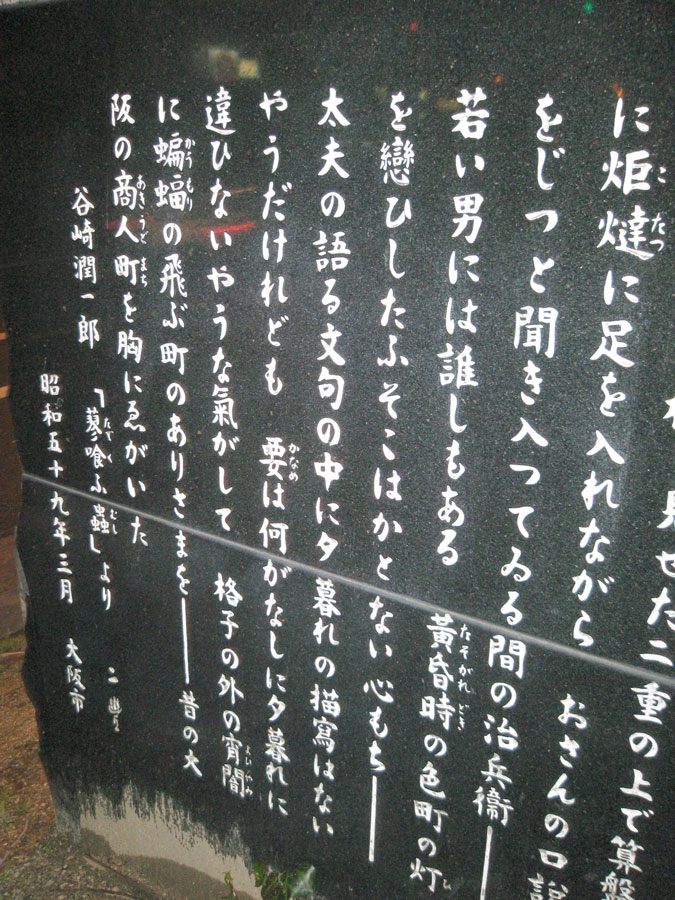 見せた二重の上で算盤
に炬燵に足を入れながら　おさんの口説
をじつと聞き入つてゐる間の治兵衞――
若い男には誰しもある　黃昏時の色町の灯
を戀ひしたふそこはかとない心もち――
太夫の語る文句の中に夕暮れの描寫はない
やうだけれども　要は何がなしに夕暮れに
違ひないやうな氣がして　格子の外の宵闇
に蝙蝠の飛ぶ町のありさまを――昔の大
阪の商人町を胸にゑがいた
谷崎潤一郎　「蓼喰ふ蟲」より
昭和五十九年三月　大阪市